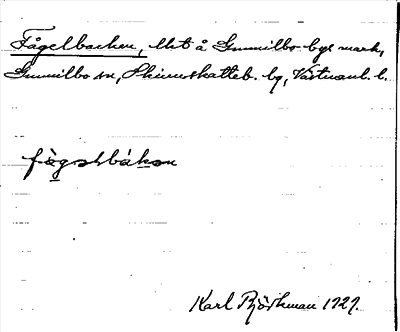 Fågelbacken, lht å Gunnilbo bys mark,
Gunnilbo sn, Skinnskatteb. bg, Västmanl. l.
fågəlbàkən
Karl Björkman 1929.